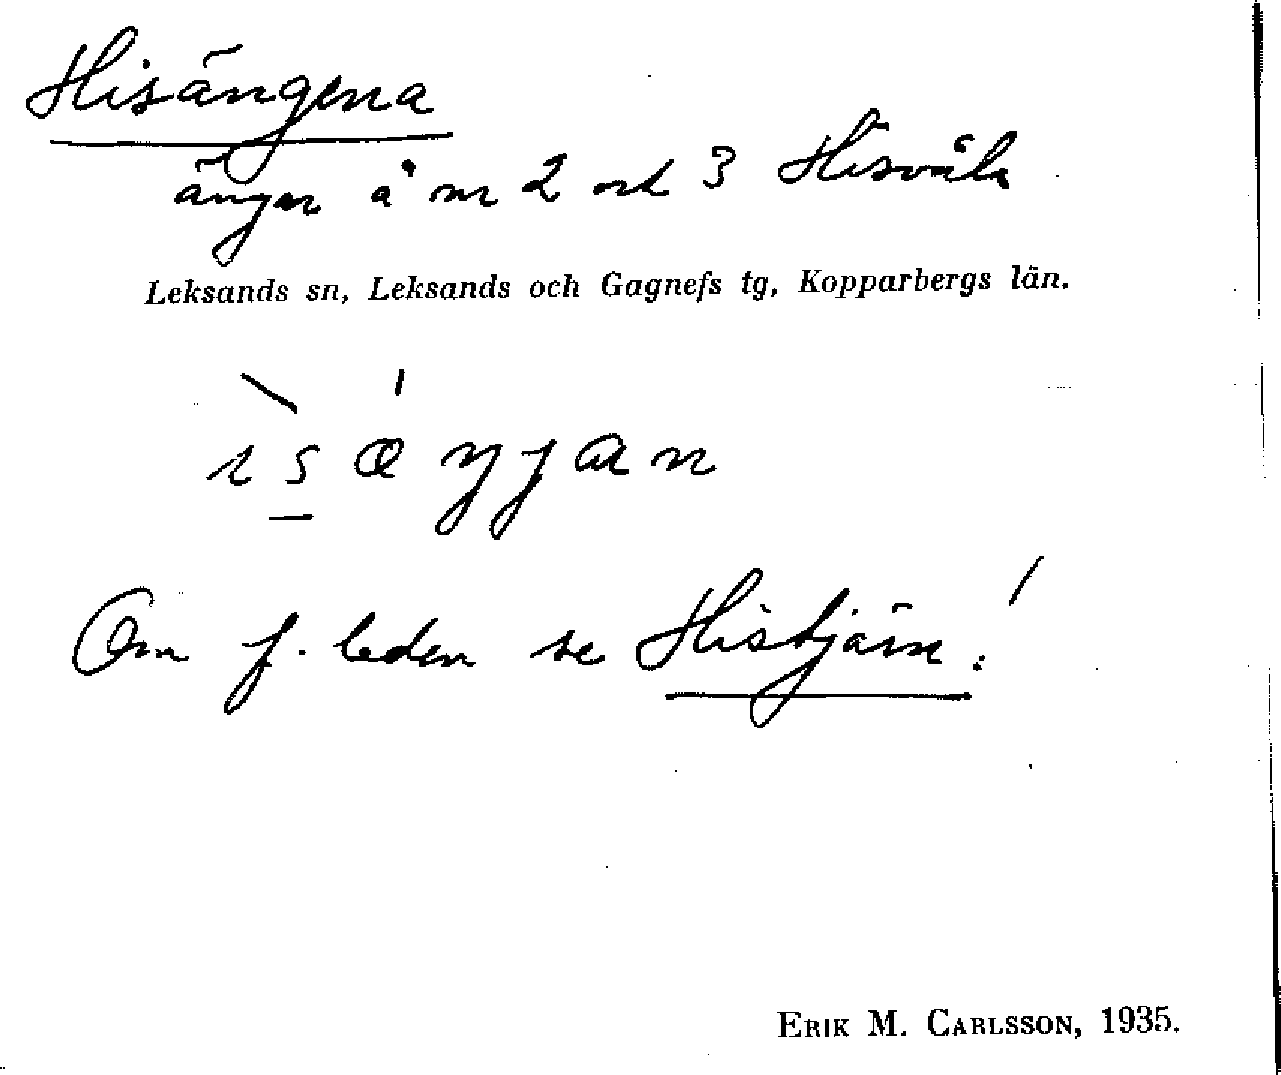 Hisängena
ängar å nr 2 och 3 Hisvåla
Leksands sn, Leksands och Gagnefs tg, Kopparbergs län.
Om f. leden se Histjärn!
ERIK M. CARLSSON, 1935.